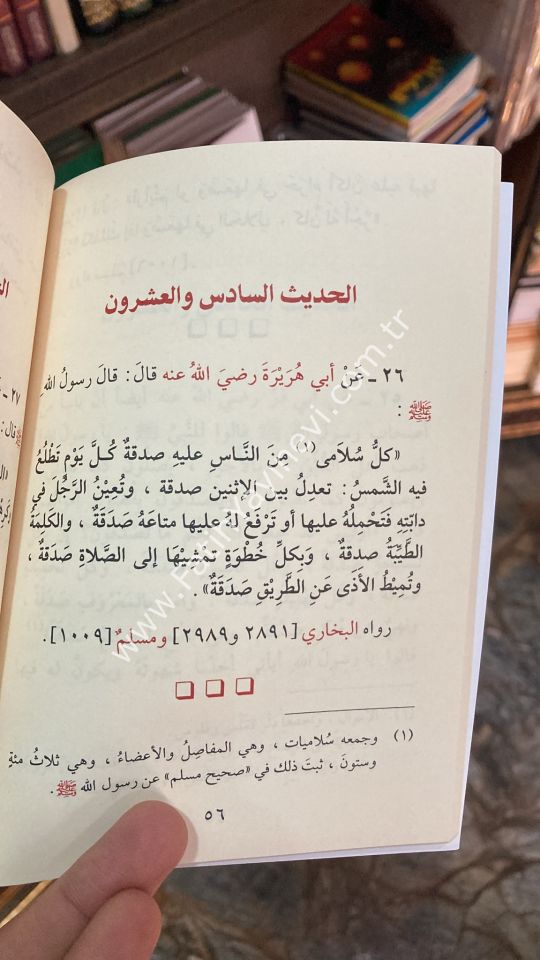 الحديث السادس والعشرون
٢٦ ـ عَنْ أبي هُرَيْرَةَ رضيَ اللهُ عنه قالَ: قالَ رسولُ اللهِ
ﷺ :
«كلُّ سُلامى(١) مِنَ النَّاسِ عليهِ صدقةٌ كُلَّ يَومٍ تَطْلُعُ
فيه الشَّمسُ: تعدِلُ بينَ الإثنينِ صدقة ، وتُعِيْنُ الرَّجُلَ في
دابّتِهِ فَتَحْمِلُهُ عليها أو تَرْفَعُ لهُ عليها متاعَهُ صَدَقَةٌ ، والكَلِمَةُ
الطَّيِّبَةُ صدقةٌ ، وَبِكلِّ خُطْوَةٍ تمشيْهَا إلى الصَّلاةِ صَدَقةٌ ،
وتُمِيْطُ الأذَى عَنِ الطَّرِيْقِ صَدَقَةٌ».
رواه البخاري [٢٨٩١ و٢٩٨٩] ومسلمٌ [١٠٠٩].
(١) وجمعه سُلاميات ، وهي المفاصِلُ والأعضاءُ ، وهي ثلاثُ مئةٍ
وستونَ ، ثبتَ ذلك في «صحيح مسلم» عن رسول الله ﷺ .
٥٦
٢٧ ـ